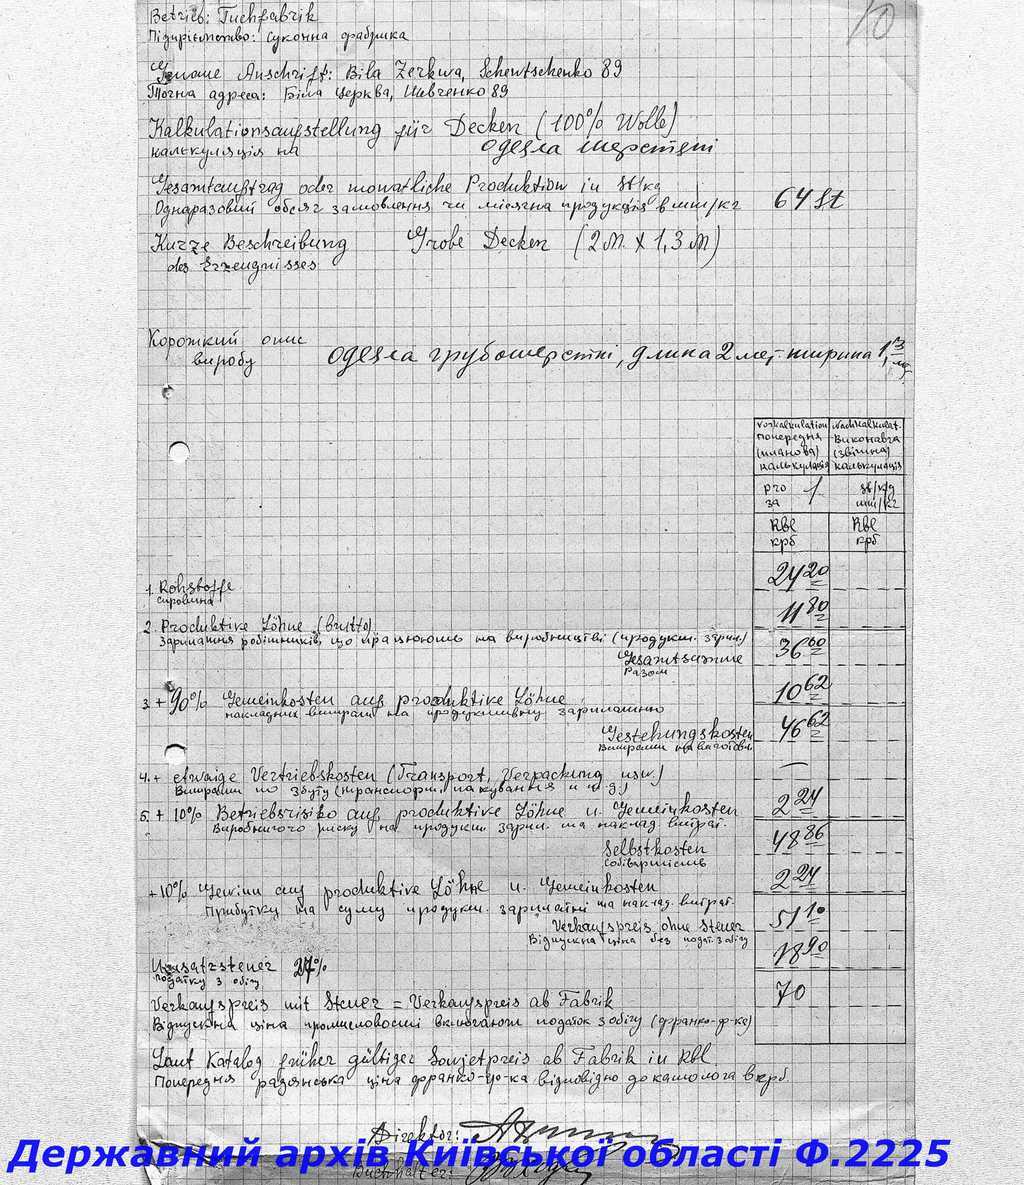 10
Betrieb: Tuchfabrik
Підприємство: суконна фабрика
Genaue Anschrift: Bila Zerkwa, Schewtschenko 89
Точна адреса: Біла Церква, Шевченко 89
Kalkulationsaufstellung für Decken (100% Wolle)
калькуляція на одеяла шерстяні
Gesamtauftrag oder monatliche Produktion in St/kg
Одноразовий обсяг замовлення чи місячна продукція в шт/кг 64 St
Kurze Beschreibung Grobe Decken (2 m x 1,3 m)
des Erzeugnisses
Короткий опис
виробу одеяла грубошерстні, длина 2 мет. ширина 1,3
Vorkalkulation Nachkalkulat.
попередня Виконавча
(планова) (звітна)
калькуляція калькуляція
pro 1 St/kg
за шт/кг
Rbl Rbl
крб крб
1. Rohstoffe 24 20
сировина
2. Produktive Löhne (brutto) 11 80
Зарплатня робітників, що працюють на виробництві (продукт. зарпл)
Gesamtsumme 36 00
Разом
3. + 90% Gemeinkosten auf produktive Löhne 10 62
накладних витрат на продуктивну зарплатню
Gestehungskosten 46 62
Витрати на виготовл.
4. + etwaige Vertriebskosten (Transport, Verpackung usw.) —
Витрати по збуту (транспорт. пакування и т.д.)
5. + 10% Betriebsrisiko auf produktive Löhne u. Gemeinkosten 2 24
Виробничого риску на продукт. зарпл. та наклад витрат.
Selbstkosten 48 86
Собівартість
+ 10% Gewinn auf produktive Löhne u. Gemeinkosten 2 24
Прибутку на суму продукт. зарплатні та наклад. витрат.
Verkaufspreis ohne Steuer 51 10
Відпускна ціна без подат. з обігу
Umsatzsteuer 27% 18 90
податку з обігу
Verkaufspreis mit Steuer = Verkaufspreis ab Fabrik 70
Відпускна ціна промисловості включаючи податок з обігу (франко-ф-ка)
Laut Katalog früher gültiger Sowjetpreis ab Fabrik in Rbl
Попередня радянська ціна франко-ф-ка відповідно до каталога в крб.
Direktor:
Buchhalter:
Державний архів Київської області Ф.2225